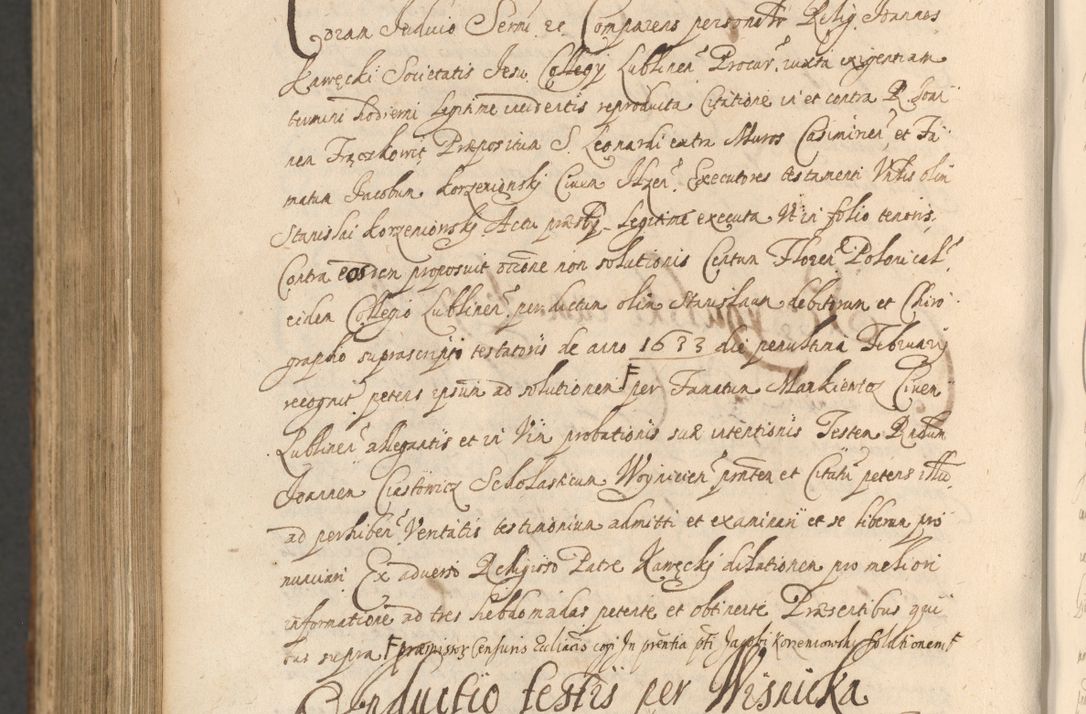 Coram Judicio Sermi etc Comparens personalr Relig. Joannes
Kawęcki Societatis Jesu Collegij Lublinen Procur. iuxta exigentiam
termini hodierni legitime incidentis reproducta Citatione in et contra R. Joan
nem Frączkowic Præpositum S. Leonardi extra Muros Casimirien et Fa
matum Jacobum Korzenionskj Civem Ilzen Executores testamenti Vltis olim
Stanislai Korzenionskj Actu præsbj legitime executa Vt in folio tenoris,
Contra eosdem proposuit ocone non solutionis Centum Floren Polonical
eidem Collegio Lublinen per dictum olim Stanislaum debitorum et Chiro
grapho suprascripto testatoris de anno 1633 die penultima Februarij
recognit petens ipsum ad solutionem F per Famatum Mankiewicz Civem
Lublinen allegantis et in Vim probationis suæ intentionis Testem Rndum
Joannem Ciastowicz Scholasticum Woynicien pntem et Citatu petens illu
ad perhiben Veritatis testimonium admitti et examinari et se liberum pro
nunciari Ex adverso Religioso Patre Kawęckj dilationem pro meliori
informatione ad tres hebdomadas petente et obtinente Præsentibus qui
bus supra F præmissis Censuris Eccliacis cogi In prentia pti Jacobi Korzeniowski solutionem F
Inductio testis per Wisnicka